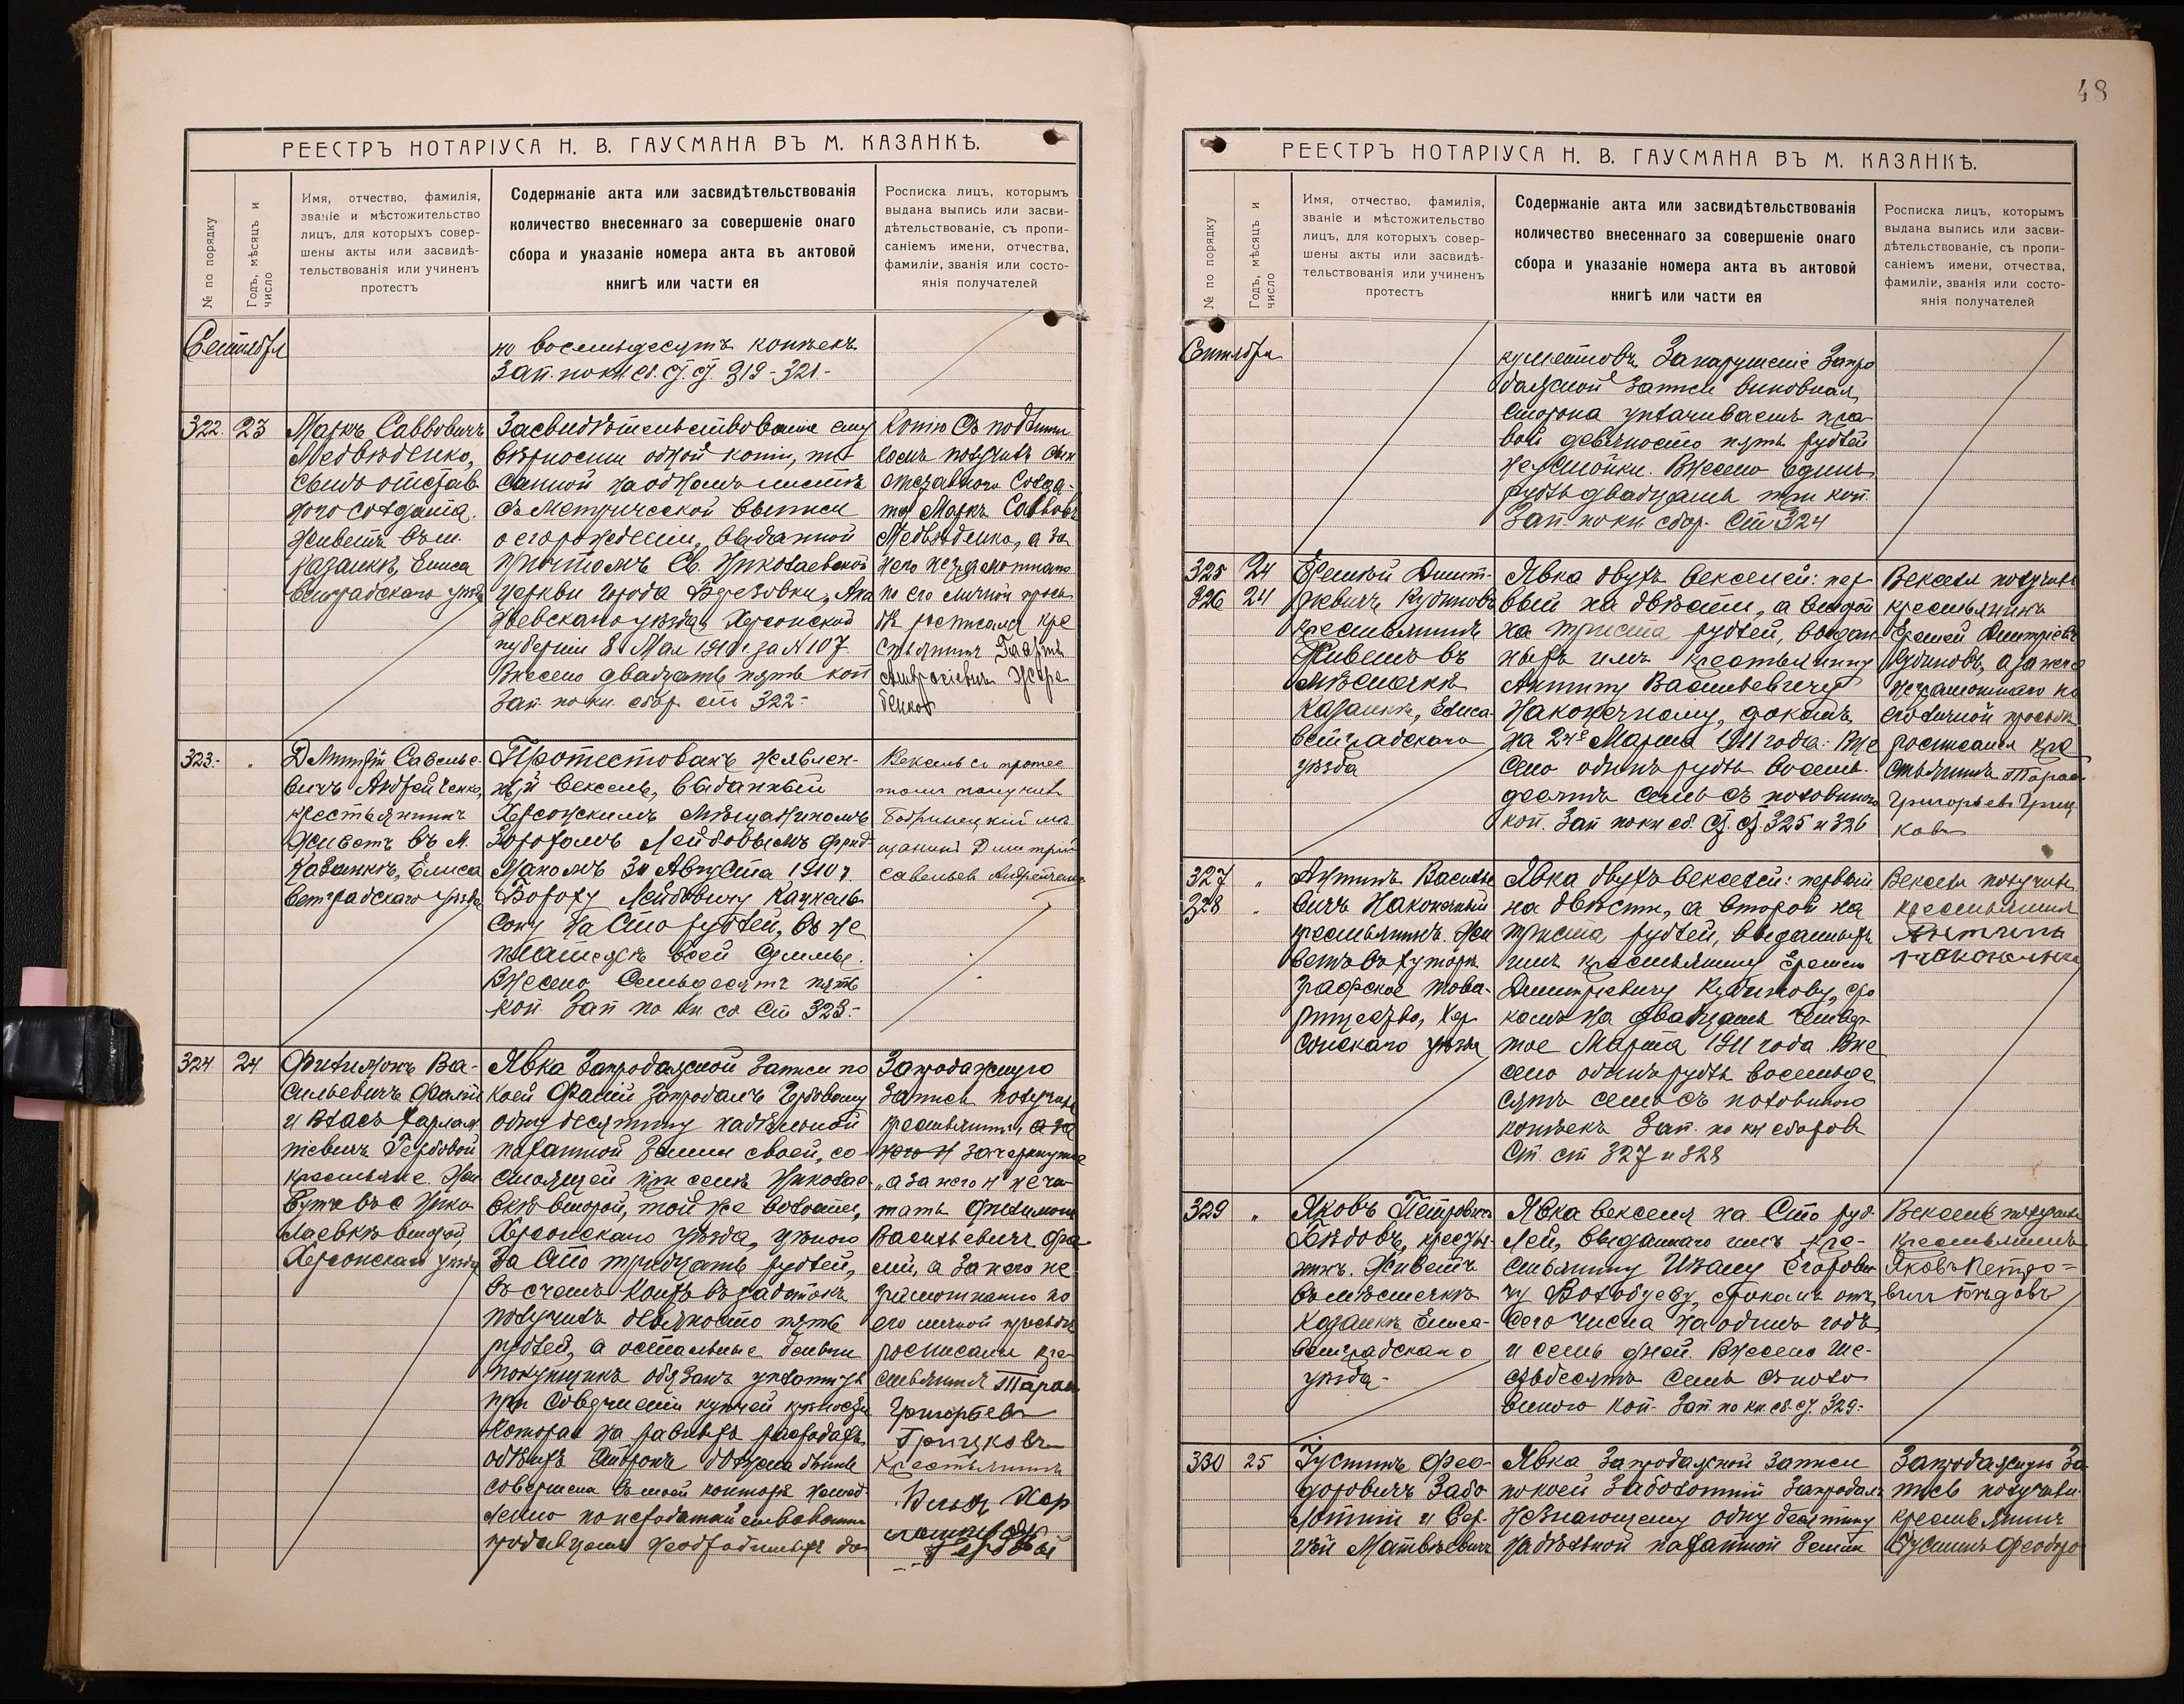 РЕЕСТРЪ НОТАРІУСА Н. В. ГАУСМАНА ВЪ М. КАЗАНКѢ.
№ по порядку
Годъ, мѣсяцъ и
число
Имя, отчество, фамилія,
званіе и мѣстожительство
лицъ, для которыхъ совер-
шены акты или засвидѣ-
тельствованія или учиненъ
протестъ
Содержаніе акта или засвидѣтельствованія
количество внесеннаго за совершеніе онаго
сбора и указаніе номера акта въ актовой
книгѣ или части ея
Росписка лицъ, которымъ
выдана выпись или засви-
дѣтельствованіе, съ пропи-
саніемъ имени, отчества,
фамиліи, званія или состо-
янія получателей
Сентября
но восемьдесятъ копѣекъ
Зап. по кн. сб. 319-321.-
322. 23
Маркъ Саввовичъ
Медвѣденко,
сынъ отстав
ного солдата.
Живетъ въ м.
Казанкѣ, Елиса
ветградскаго уѣзда
Засвидѣтельствованіе ему
вѣрности одной копіи, пи
санной на одномъ листѣ
съ метрической выписи
о его рожденіи, выданной
причтомъ Св. Николаевской
церкви города Березовки, Ана
ньевскаго уѣзда Херсонской
губерніи 8 Мая 1910 г. за № 107.
Внесено двадцать пять коп
Зап. по кн. сбор. ст 322-
Копію съ подлинни
комъ получилъ сынъ
отставного солда-
та Маркъ Саввовъ
Медвѣденко, а за
него неграмотнаго
по его личной прось
бѣ росписался кре
стьянинъ
323.-
Дмитрій Савелье-
вичъ Андрейченко,
крестьянинъ
Живетъ въ М.
Казанкѣ, Елиса
ветградскаго уѣзда
Протестованъ неявлен-
ный вексель, выданный
Херсонскимъ мѣщаниномъ
Лейбовымъ Фрид-
маномъ 30 Августа 1910 г.
Боруху Лейбовичу
сону на сто рублей, въ не
платежѣ всей суммы.
Внесено семьдесятъ пять
коп. Зап по кн сб Ст 323.-
Вексель съ протес
томъ получилъ
Бобринецкій мѣ
щанинъ Дмитрій
Савельевъ Андрейченко
324 24
Филимонъ Ва-
сильевичъ
и Власъ Харлам
піевичъ Гербовой
крестьяне. Жи
вутъ въ с Нико
лаевкѣ второй,
Херсонскаго уѣзда
Явка запродажной записи по
коей запродалъ Гербовому
одну десятину надѣльной
пахатной земли своей, со
стоящей при селѣ Николае-
вкѣ второй, той же волости,
Херсонскаго уѣзда, цѣною
за сто тридцать рублей,
въ счетъ коихъ въ задатокъ
получилъ девяносто пять
рублей, а остальные деньги
покупщикъ обязанъ уплатить
при совершеніи купчей крѣпости
которая на равныхъ расходахъ
обѣихъ сторонъ должна быть
совершена въ моей конторѣ немед-
ленно по исходатайствованіи
продавцемъ необходимыхъ до
Запродажную
запись получилъ
крестьянинъ, а за
него н зачеркнутое
„а за него н не чи
тать Филимонъ
Васильевичъ
а за него не
грамотнаго по
его личной просьбѣ
росписался кре-
стьянинъ Тарасъ
Григорьевъ
Грицковъ
Крестьянинъ
Власъ Хар
лампіевъ
Гербовый
48
РЕЕСТРЪ НОТАРІУСА Н. В. ГАУСМАНА ВЪ М. КАЗАНКѢ.
№ по порядку
Годъ, мѣсяцъ и
число
Имя, отчество, фамилія,
званіе и мѣстожительство
лицъ, для которыхъ совер-
шены акты или засвидѣ-
тельствованія или учиненъ
протестъ
Содержаніе акта или засвидѣтельствованія
количество внесеннаго за совершеніе онаго
сбора и указаніе номера акта въ актовой
книгѣ или части ея
Росписка лицъ, которымъ
выдана выпись или засви-
дѣтельствованіе, съ пропи-
саніемъ имени, отчества,
фамиліи, званія или состо-
янія получателей
Сентября
кументовъ За нарушеніе запро
дажной записи виновная
сторона уплачиваетъ пра-
вой девяносто пять рублей
неустойки. Внесено одинъ
рубль двадцать три коп.
Зап. по кн. сбор. Ст 324
325 24
326 24
Еремѣй Дмит-
ріевичъ Кудиновъ
крестьянинъ
Живетъ въ
мѣстечкѣ
Казанкѣ, Елиса-
ветградскаго
уѣзда
Явка двухъ векселей: пер
вый на двѣсти, а второй
на триста рублей, выдан
ныхъ имъ крестьянину
Антипу Васильевичу
Наконечному, срокомъ
на 24е Марта 1911 года. Вне
сено одинъ рубль восемь-
десятъ семь съ половиною
коп. Зап по кн сб. 325 и 326
Векселя получилъ
крестьянинъ
Еремей Дмитріевъ
Кудиновъ, а за него
неграмотнаго по
его личной просьбѣ
росписался кре
стьянинъ Тарасъ
Григорьевъ Гриц
ковъ
327
328
Антипъ Василье
вичъ Наконечный
крестьянинъ. Жи
ветъ въ хуторѣ
Графское това-
рищество, Хер
сонскаго уѣзда
Явка двухъ векселей: первый
на двѣсти, а второй на
триста рублей, выданныхъ
имъ крестьянину Еремею
Дмитріевичу Кудинову, сро
комъ на двадцать четвер-
тое Марта 1911 года Вне
сено одинъ рубль восемьде
сятъ семь съ половиною
копѣекъ Зап. по кн сборовъ
Ст. ст 327 и 328
Векселя получилъ
крестьянинъ
Антипъ
Наконечный
329
Яковъ Петровичъ
Бѣдовъ, крестья-
нинъ. Живетъ
въ мѣстечкѣ
Казанкѣ Елиса-
ветградскаго
уѣзда-
Явка векселя на сто руб-
лей, выданнаго имъ кре-
стьянину Ивану Егорови
чу срокомъ отъ
сего числа на одинъ годъ
и семь дней. Внесено ше-
стьдесятъ семь съ поло
виною коп. Зап. по кн сб. ст. 329.-
Вексель получилъ
крестьянинъ
Яковъ Петро-
вичъ Бѣдовъ
330 25
Іустинъ Фео-
доровичъ Забо
лотній и Сер-
гѣй Матвѣевичъ
Явка запродажной записи
по коей Заболотній запродалъ
одну десятину
надѣльной пахатной земли
Запродажную за
пись получили
крестьянинъ
Іустинъ Феодоро